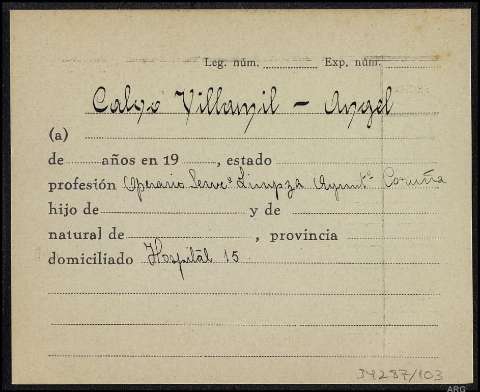 Leg. núm. Exp. núm.
Calvo Villamil - Angel
(a)
de años en 19 , estado
profesión Operario Servº Limpza Ayuntº Coruña
hijo de y de
natural de , provincia
domiciliado Hospital 15
34287/103
ARG